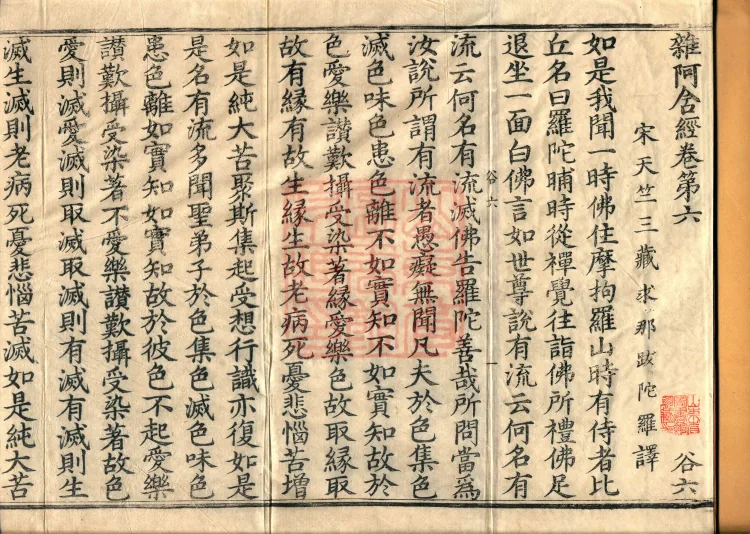 雜阿含經卷第六
谷六
宋天竺三藏求那跋陀羅譯
如是我聞一時佛住摩拘羅山時有侍者比
丘名曰羅陀晡時從禪覺往詣佛所禮佛足
退坐一面白佛言如世尊說有流云何名有
谷六
一
流云何名有流滅佛告羅陀善哉所問當為
汝說所謂有流者愚癡無聞凡夫於色集色
滅色味色患色離不如實知不如實知故於
色愛樂讚歎攝受染著緣愛樂色故取緣取
故有緣有故生緣生故老病死憂悲惱苦增
如是純大苦聚斯集起受想行識亦復如是
是名有流多聞聖弟子於色集色滅色味色
患色離如實知如實知故於彼色不起愛樂
讚歎攝受染著不愛樂讚歎攝受染著故色
愛則滅愛滅則取滅取滅則有滅有滅則生
滅生滅則老病死憂悲惱苦滅如是純大苦